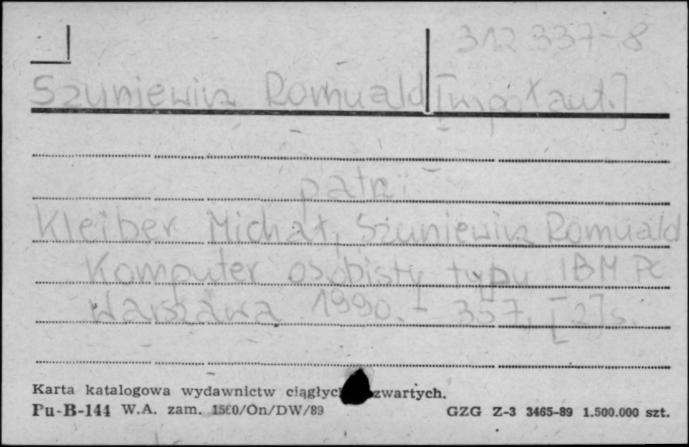 312 337-8
Szuniewicz Romuald [współaut.]
patrz:
Kleiber Michał, Szuniewicz Romuald
Komputer osobisty typu IBM PC
Warszawa 1990. - 357, [2] s.
Karta katalogowa wydawnictw ciągłyc zwartych.
Pu-B-144 W.A. zam. 1560/On/DW/89 GZG Z-3 3465-89 1.500.000 szt.